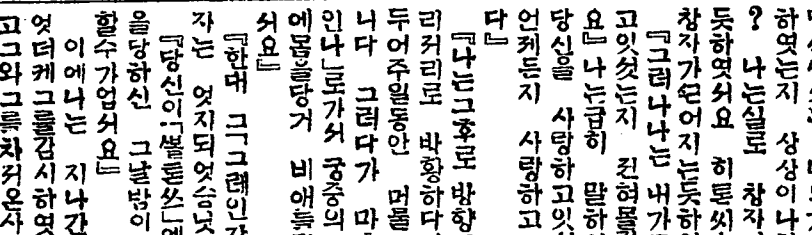 하엿는지 상상이나
? 나는실로 창자
듯하엿서요 히톤씨
창자가끈어지는듯하
『그러나나는 내가
고잇섯는지 전혀몰
요』 나는급히 말하
당신을 사랑하고잇
언제든지 사랑하고
다』
『나는그후로 방향
리저리로 방황하다
두어주일동안 머물
니다 그러다가 마
인나」로가서 궁중의
에몸을당거 비애를
서요』
『한대 그「그레인
자는 엇지되엇슴닛
『당신이「뽈톤쓰」에
을당하신 그날밤이
할수가업서요』
이에나는 지나간
엇더케그를감시하엿
고그와그를차저온사